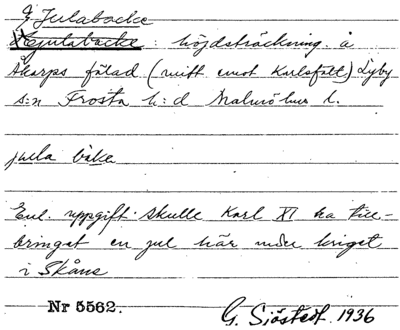 G Julabacke
höjdsträckning å
Åkarps fälad (mitt emot Karlsfält) Lyby
s:n Frosta h:d Malmöhus l.
jula bake
Enl. uppgift skulle Karl XI ha till-
bringat en jul här under kriget
i Skåne
Nr 5562.
G. Sjöstedt. 1936